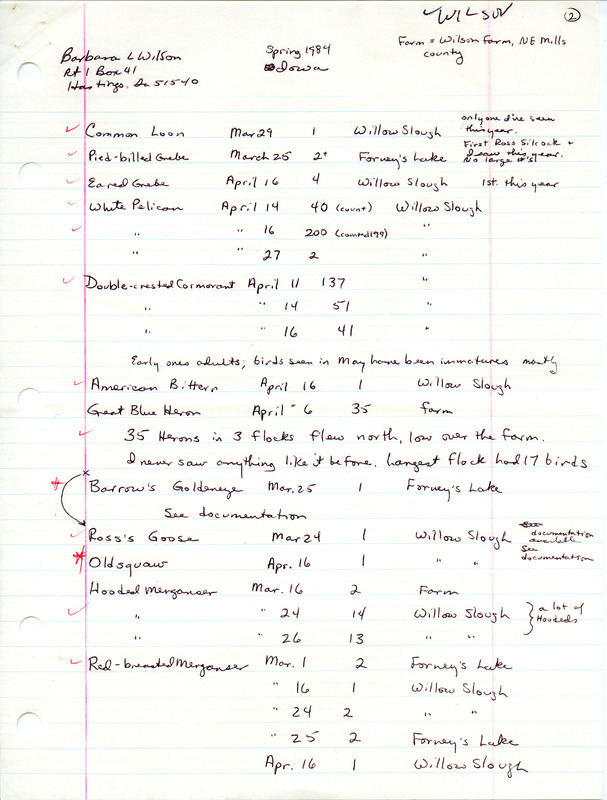 ✓WILSON
②
Barbara L Wilson
Rt 1 Box 41
Hastings, Ia 51540
Spring 1984
Iowa
Farm = Wilson Farm, NE Mills
county
✓ Common Loon Mar 29 1 Willow Slough only one I've seen
this year.
✓ Pied-billed Grebe March 25 2+ Forney's Lake First Ross Silcock +
I saw this year.
No large #'s!
✓ Eared Grebe April 16 4 Willow Slough 1st this year
White Pelican April 14 40 (count) Willow Slough
✓ " " 16 200 (counted 199) "
" " 27 2 "
✓ Double-crested Cormorant April 11 137 "
" " 14 51 "
" " 16 41 "
Early ones adults; birds seen in May have been immatures mostly
✓ American Bittern April 16 1 Willow Slough
Great Blue Heron April 6 35 farm
✓ 35 Herons in 3 flocks flew north, low over the farm.
I never saw anything like it before. Largest flock had 17 birds
* Barrow's Goldeneye Mar. 25 1 Forney's Lake
See documentation
✓ Ross's Goose Mar 24 1 Willow Slough documentation
available
* Oldsquaw Apr. 16 1 " " See
documentation
Hooded Merganser Mar. 16 2 Farm
✓ " " 24 14 Willow Slough } a lot of
Hoodeds
" " 26 13 " "
✓ Red-breasted Merganser Mar. 1 2 Forney's Lake
" 16 1 Willow Slough
" 24 2 " "
" 25 2 Forney's Lake
Apr. 16 1 Willow Slough